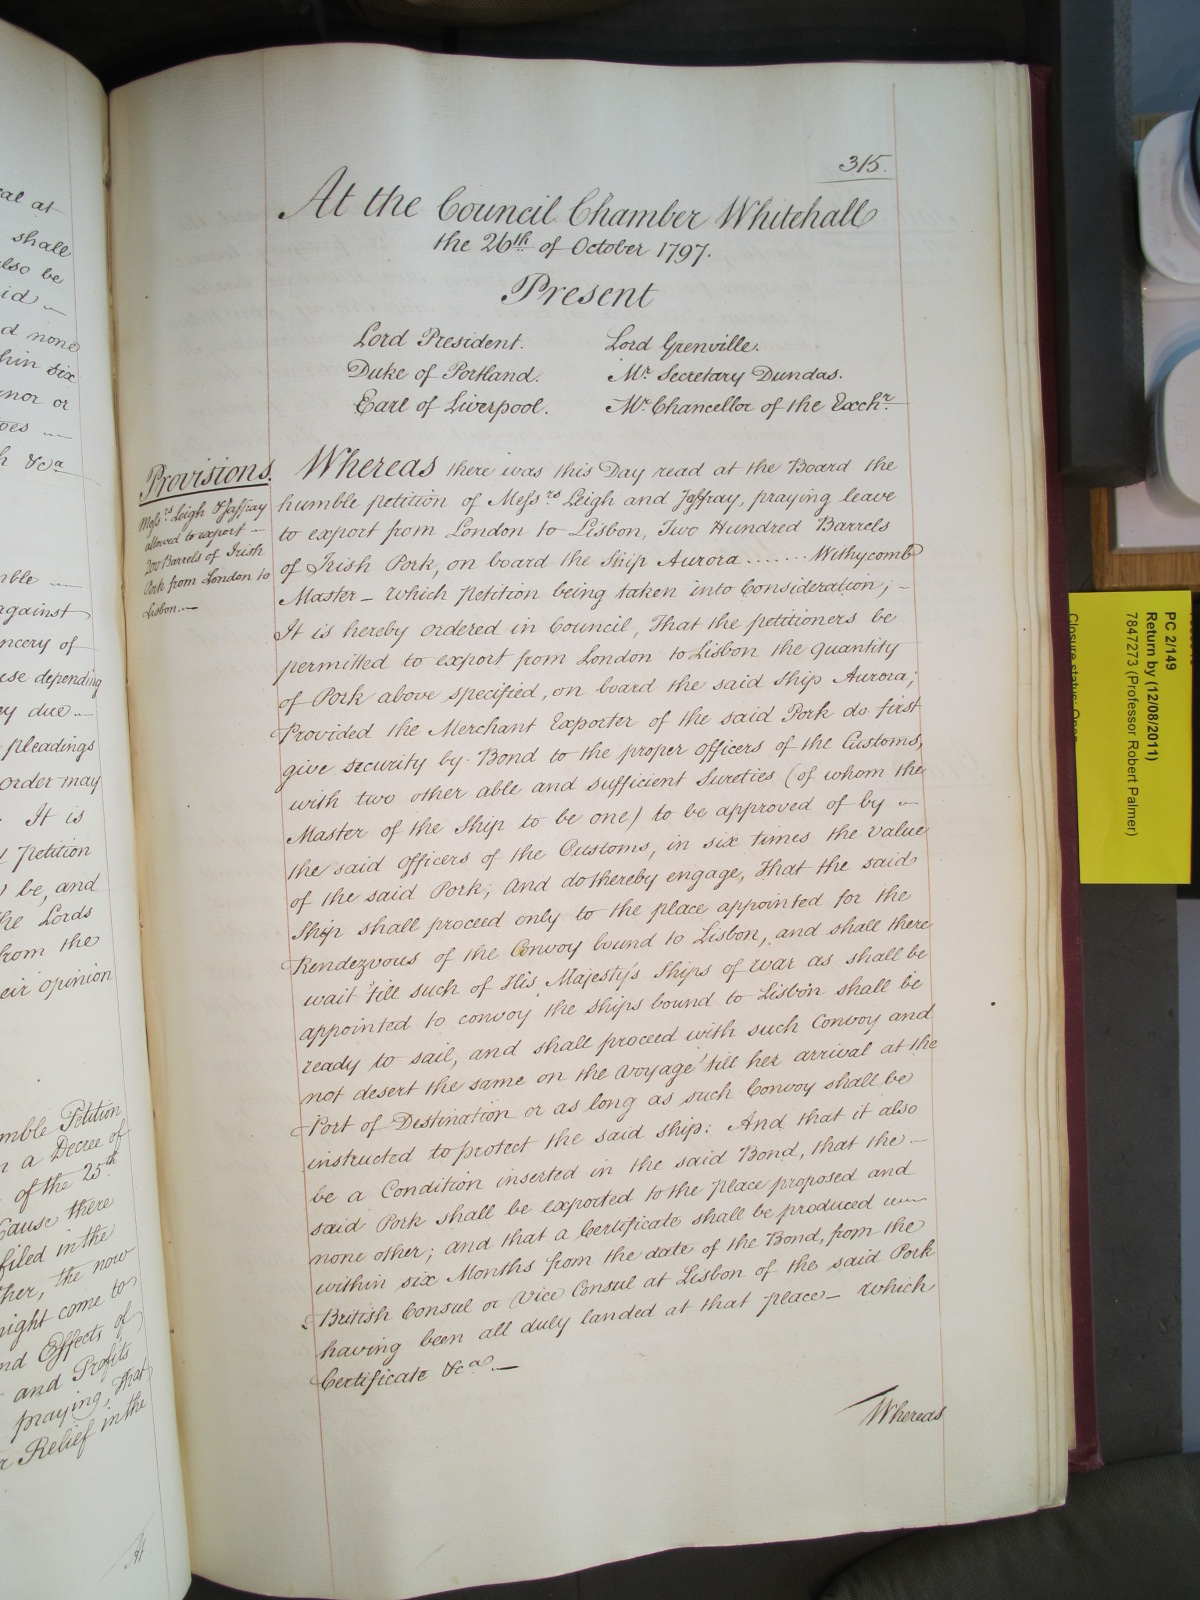 cal at
shall
also be
id —
d none
hin six
nor or
oes —
h &c.a
mble —
against
ncery of
use depending
ny due —
pleadings
order may
It is
petition
be, and
he Lords
from the
eir opinion
mble Petition
n a Decree of
of the 25th
Cause there
filed in the
her, the now
night come to
nd Effects of
and Profits
praying, that
r Relief in the
At
315.
At the Council Chamber Whitehall
the 26th of October 1797.
Present
Lord President. Lord Grenville.
Duke of Portland. Mr. Secretary Dundas.
Earl of Liverpool. Mr. Chancellor of the Exchr.
Provisions.
Messrs. Leigh & Jaffray
allowed to export —
200 Barrels of Irish
Pork from London to
Lisbon. —
Whereas there was this Day read at the Board the
humble petition of Messrs. Leigh and Jaffray, praying leave
to export from London to Lisbon, Two Hundred Barrels
of Irish Pork, on board the Ship Aurora ....... Withycomb
Master – which Petition being taken into Consideration; –
It is hereby ordered in Council, That the petitioners be
permitted to export from London to Lisbon the quantity
of Pork above specified, on board the said Ship Aurora;
Provided the Merchant Exporter of the said Pork do first
give security by Bond to the proper officers of the Customs,
with two other able and sufficient Sureties (of whom the
Master of the Ship to be one) to be approved of by —
the said officers of the Customs, in six times the value
of the said Pork; And do thereby engage, That the said
Ship shall proceed only to the place appointed for the
Rendezvous of the Convoy bound to Lisbon, and shall there
wait 'till such of His Majesty's Ships of War as shall be
appointed to convoy the Ships bound to Lisbon shall be
ready to sail, and shall proceed with such Convoy and
not desert the same on the Voyage 'till her arrival at the
Port of Destination or as long as such Convoy shall be
instructed to protect the said ship: And that it also
be a Condition inserted in the said Bond, that the —
said Pork shall be exported to the place proposed and
none other; and that a Certificate shall be produced —
within six Months from the date of the Bond, from the
British Consul or Vice Consul at Lisbon of the said Pork
having been all duly landed at that place – which
Certificate &c.a —
Whereas
PC 2/149
Return by (12/08/2011)
7847273 (Professor Robert Palmer)
Closure status: Open